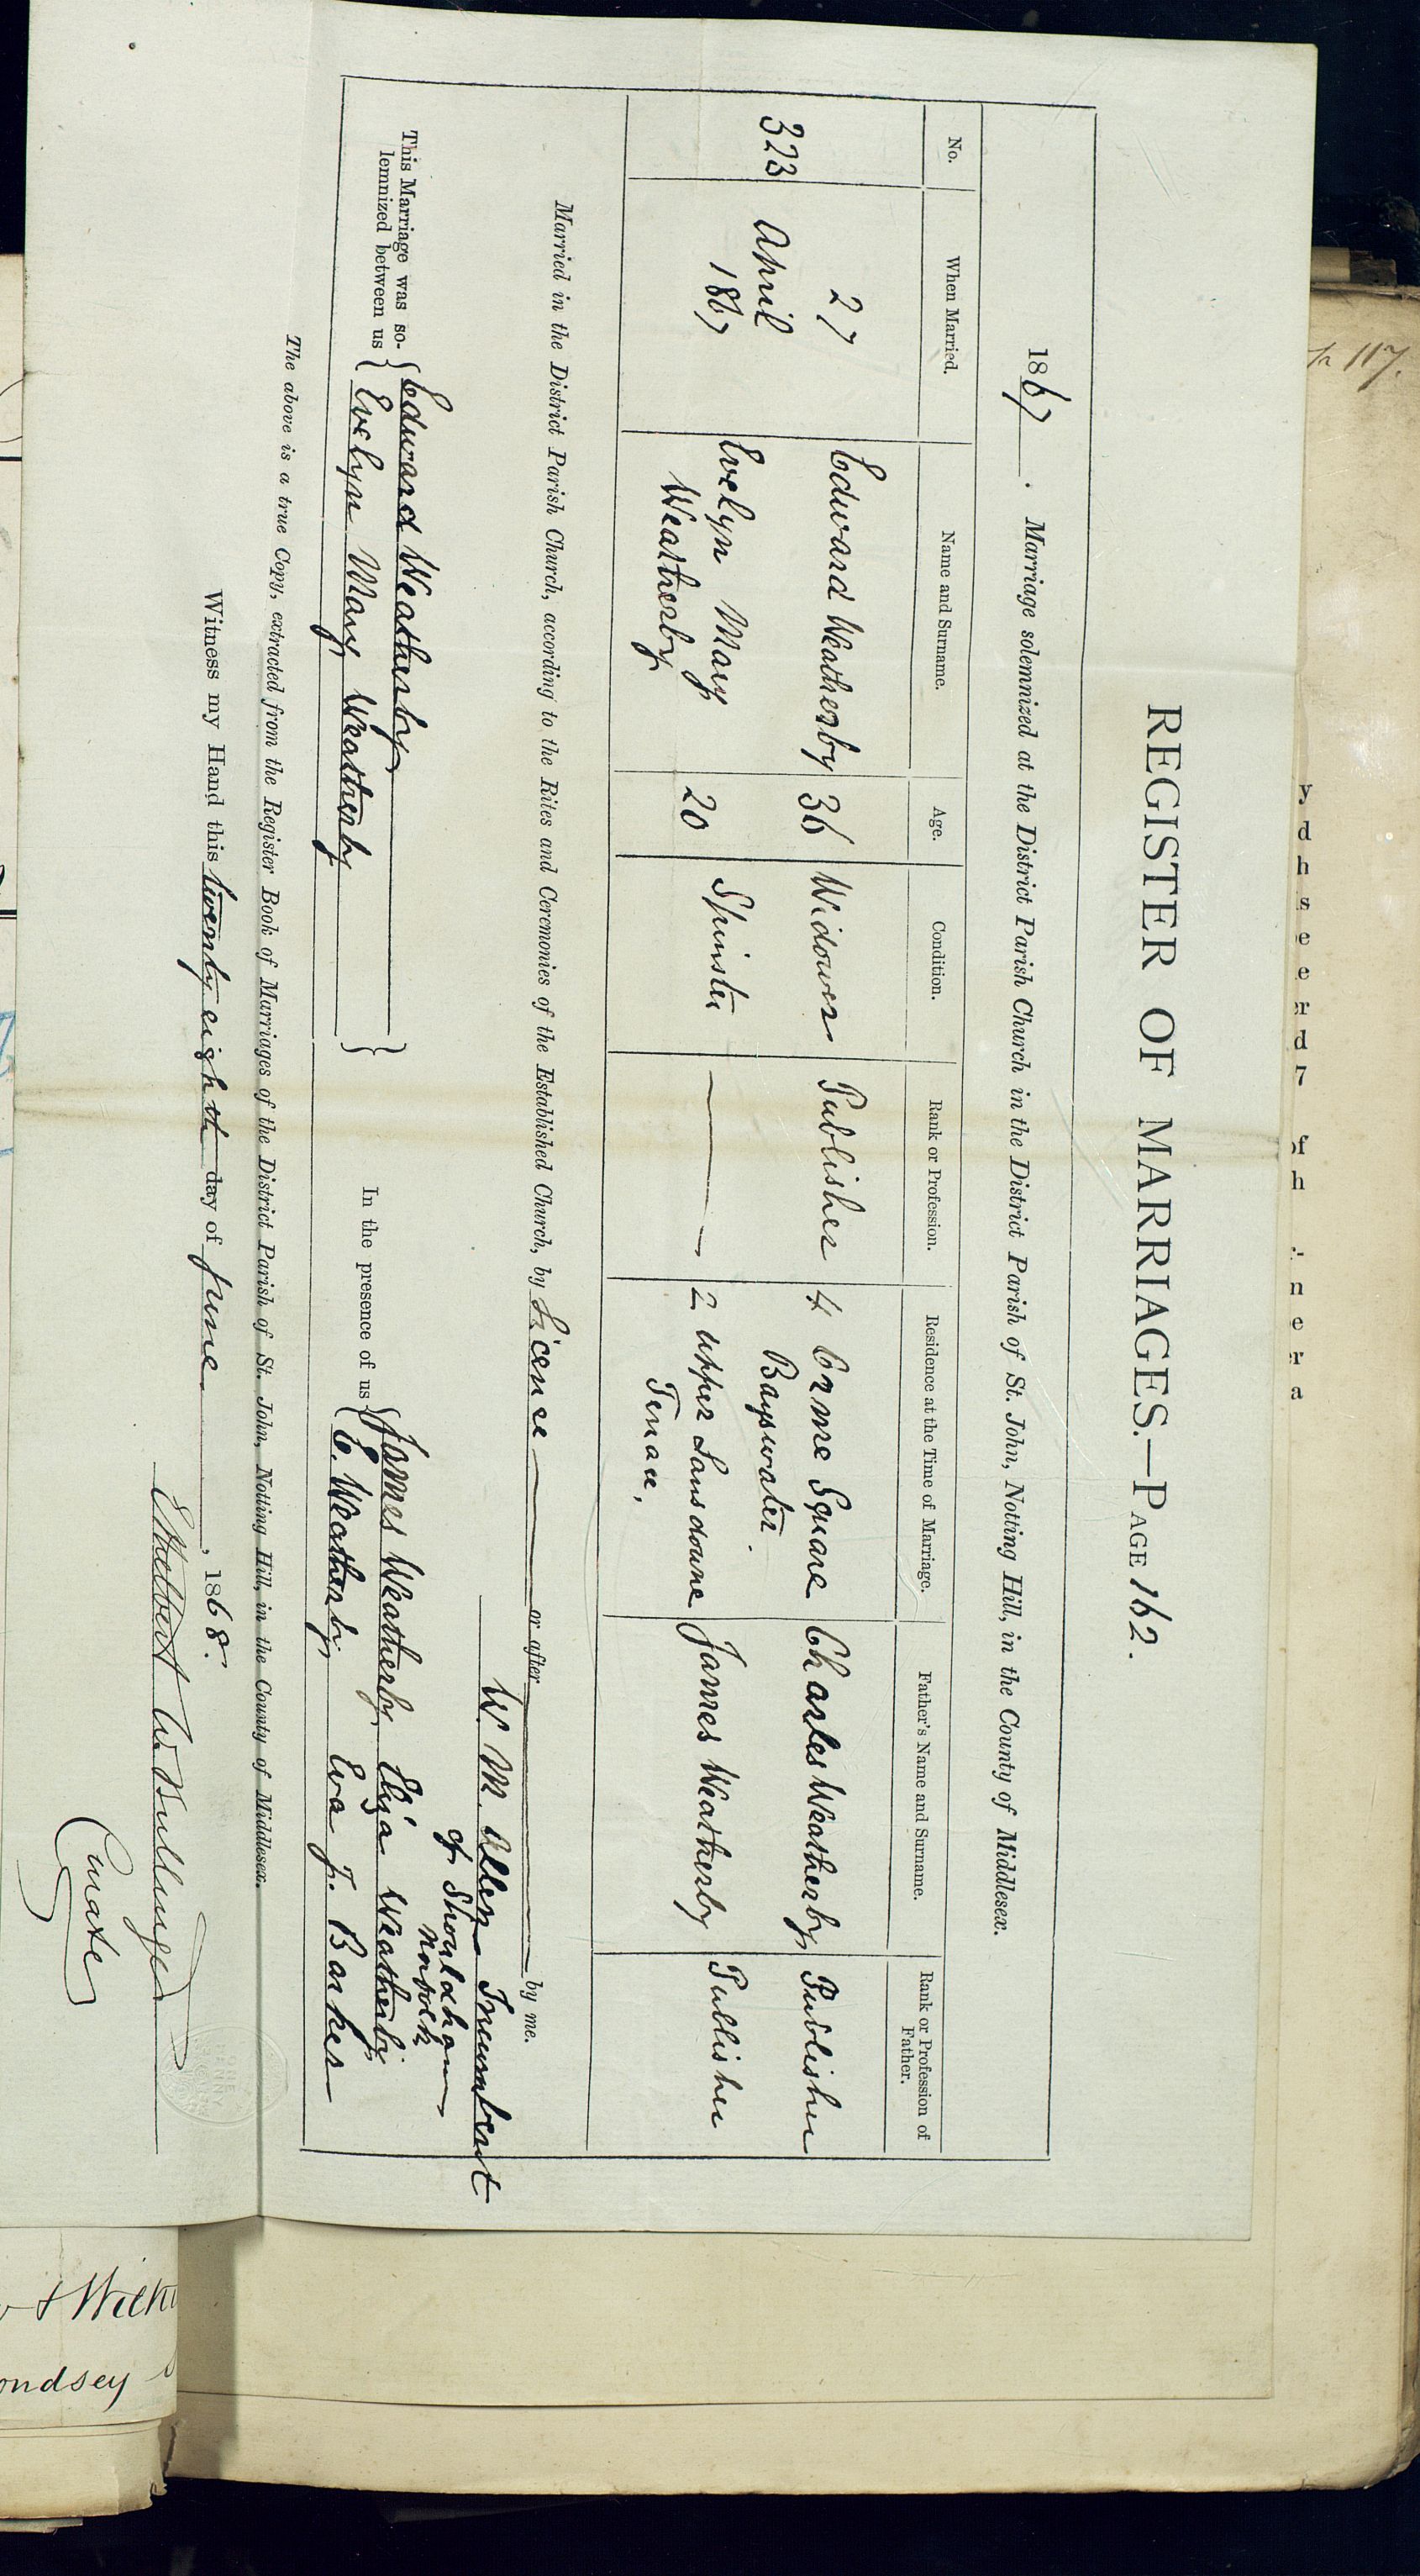 REGISTER OF MARRIAGES.—PAGE 162.
1867. Marriage solemnized at the District Parish Church in the District Parish of St. John, Notting Hill, in the County of Middlesex.
No. When Married. Name and Surname. Age. Condition. Rank or Profession. Residence at the Time of Marriage. Father's Name and Surname. Rank or Profession of Father.
323 27 April 1867 Edward Weatherby 36 Widower Publisher 4 Orme Square Bayswater. Charles Weatherby Publisher
Evelyn Mary Weatherby 20 Spinster — 2 Upper Lansdowne Terrace, James Weatherby Publisher
Married in the District Parish Church, according to the Rites and Ceremonies of the Established Church, by Licence or after by me.
W. M. Allen Incumbent
of Shouldham
Norfolk
This Marriage was so-
lemnized between us
Edward Weatherby
Evelyn Mary Weatherby
In the presence of us
James Weatherby Eliza Weatherby
E. Weatherby Eva J. Barker
The above is a true Copy, extracted from the Register Book of Marriages of the District Parish of St. John, Notting Hill, in the County of Middlesex.
Witness my Hand this twenty eighth day of June, 1868.
Ethelbert W.
Curate
117.
ondsey